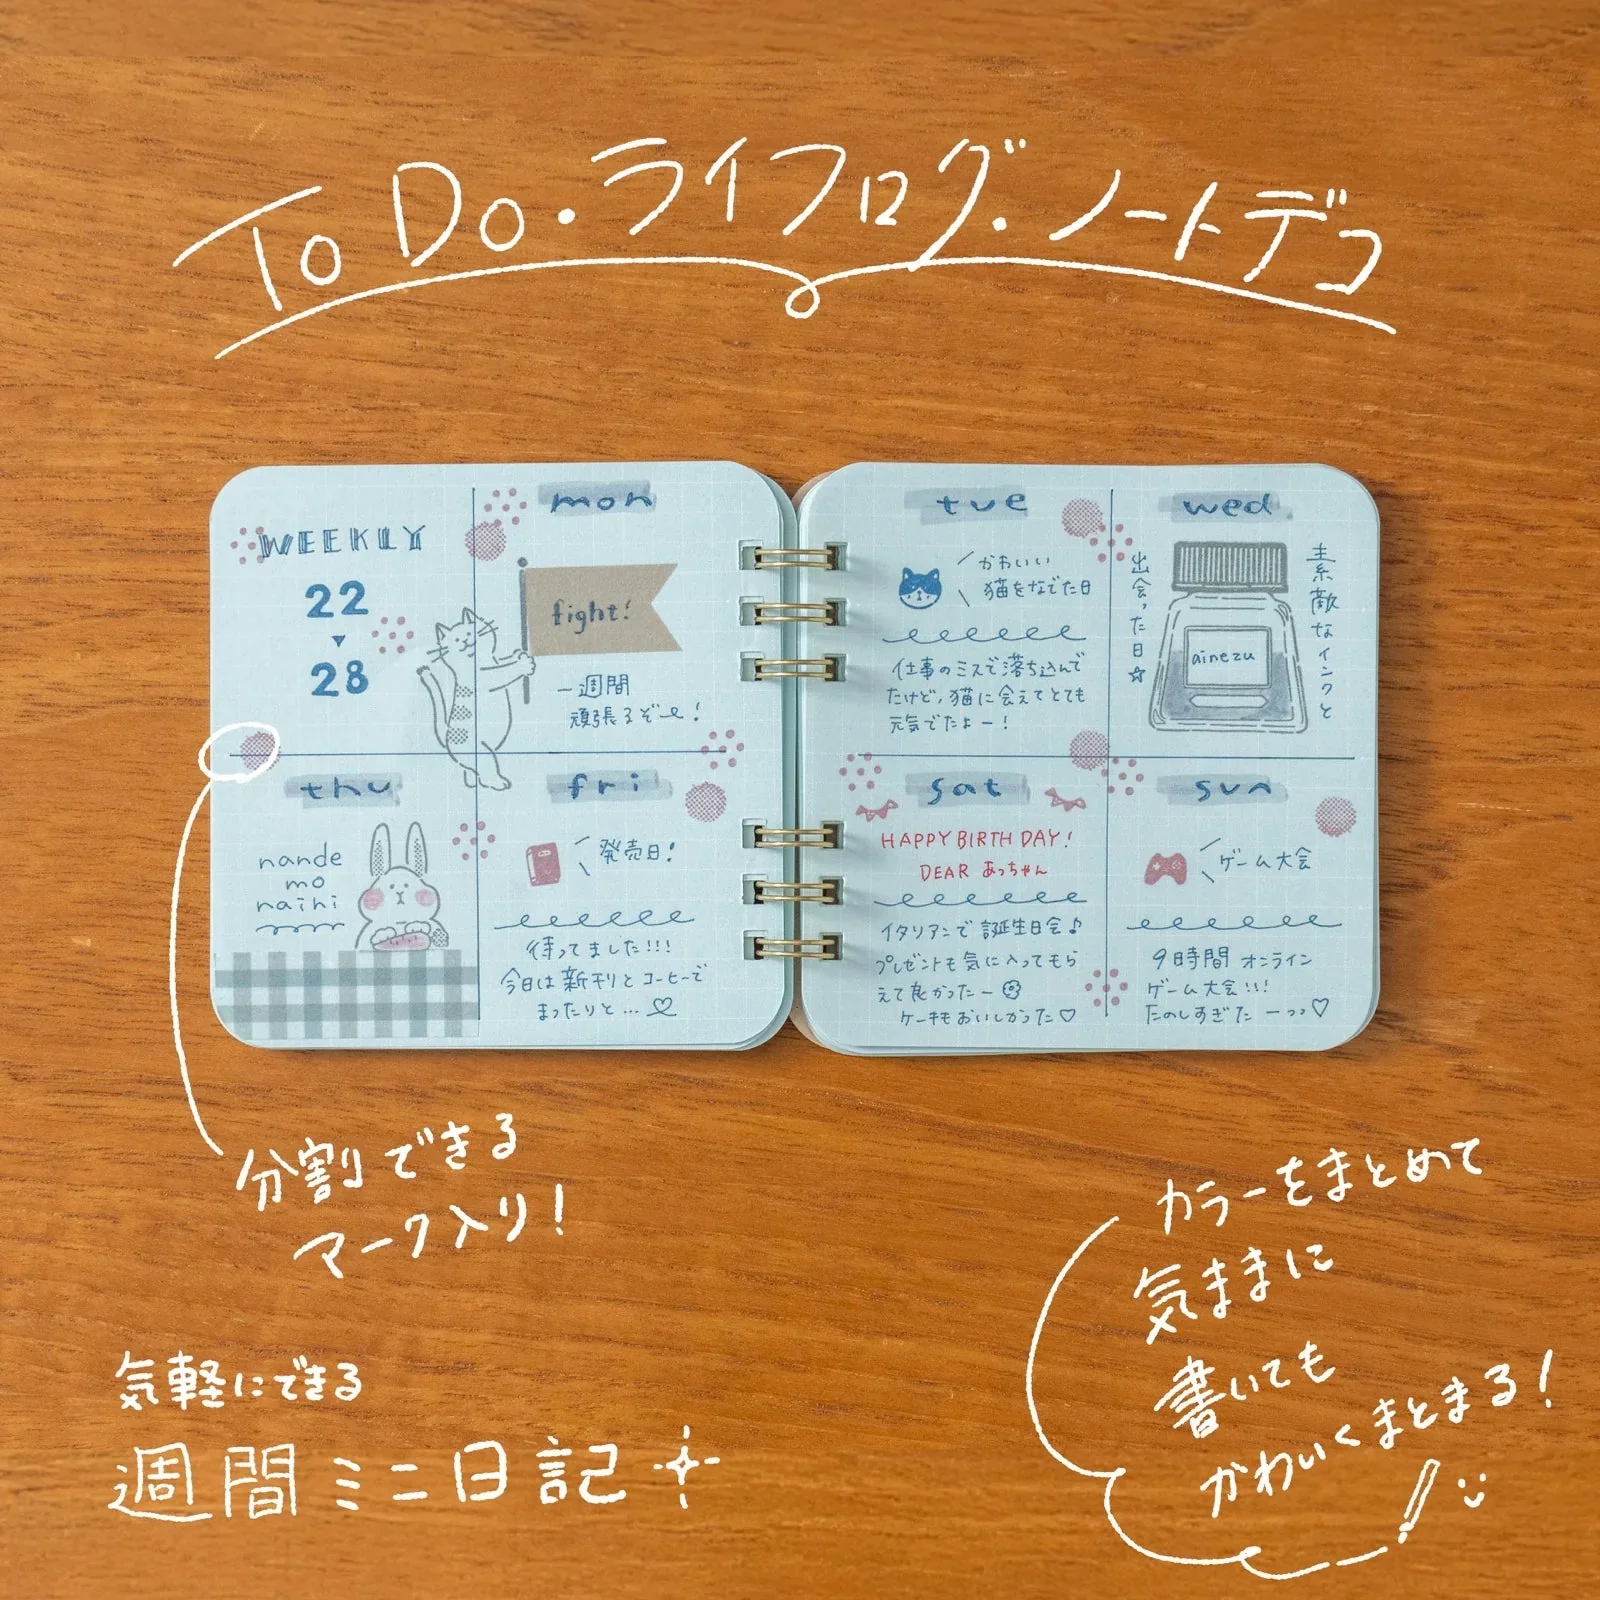 To Do・ライフログ・ノートデコ
WEEKLY
22
▼
28
mon
fight!
一週間
頑張るぞー!
tue
かわいい
猫をなでた日
仕事のミスで落ち込んで
たけど,猫に会えてとても
元気でたよー!
wed
素敵なインクと
出会った日☆
ainezu
thu
nande
mo
naihi
fri
発売日!
待ってました!!!
今日は新刊とコーヒーで
まったりと…♡
sat
HAPPY BIRTHDAY!
DEAR あっちゃん
イタリアンで誕生日会♪
プレゼントも気に入ってもら
えて良かったー
ケーキもおいしかった♡
sun
ゲーム大会
9時間オンライン
ゲーム大会!!!
たのしすぎたーっっ♡
分割できる
マーク入り!
気軽にできる
週間ミニ日記
カラーをまとめて
気ままに
書いても
かわいくまとまる!